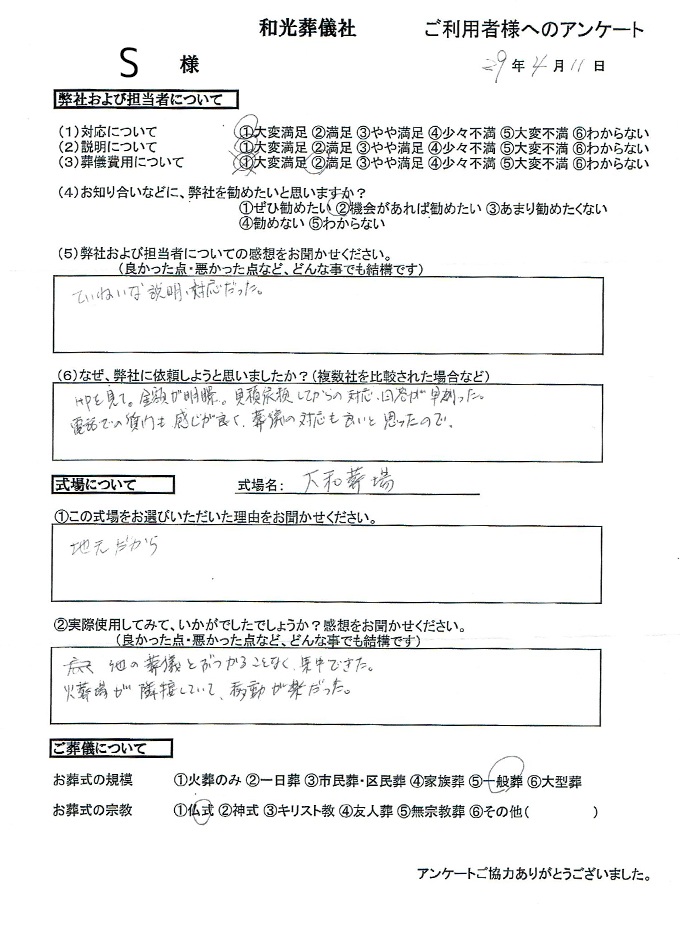 和光葬儀社 ご利用者様へのアンケート
S 様 29年4月11日
弊社および担当者について
(1)対応について ①大変満足 ②満足 ③やや満足 ④少々不満 ⑤大変不満 ⑥わからない
(2)説明について ①大変満足 ②満足 ③やや満足 ④少々不満 ⑤大変不満 ⑥わからない
(3)葬儀費用について ①大変満足 ②満足 ③やや満足 ④少々不満 ⑤大変不満 ⑥わからない
(4)お知り合いなどに、弊社を勧めたいと思いますか？
①ぜひ勧めたい ②機会があれば勧めたい ③あまり勧めたくない
④勧めない ⑤わからない
(5)弊社および担当者についての感想をお聞かせください。
(良かった点・悪かった点など、どんな事でも結構です)
ていねいな説明、対応だった。
(6)なぜ、弊社に依頼しようと思いましたか？(複数社を比較された場合など)
HPを見て。金額が明瞭。見積依頼してからの対応、回答が早かった。
電話での質問も感じが良く、葬儀の対応も良いと思ったので。
式場について 式場名： 大和葬場
①この式場をお選びいただいた理由をお聞かせください。
地元だから
②実際使用してみて、いかがでしたでしょうか？感想をお聞かせください。
(良かった点・悪かった点など、どんな事でも結構です)
他の葬儀とぶつかることなく、集中できた。
火葬場が隣接していて、移動が楽だった。
ご葬儀について
お葬式の規模 ①火葬のみ ②一日葬 ③市民葬・区民葬 ④家族葬 ⑤一般葬 ⑥大型葬
お葬式の宗教 ①仏式 ②神式 ③キリスト教 ④友人葬 ⑤無宗教葬 ⑥その他( )
アンケートご協力ありがとうございました。